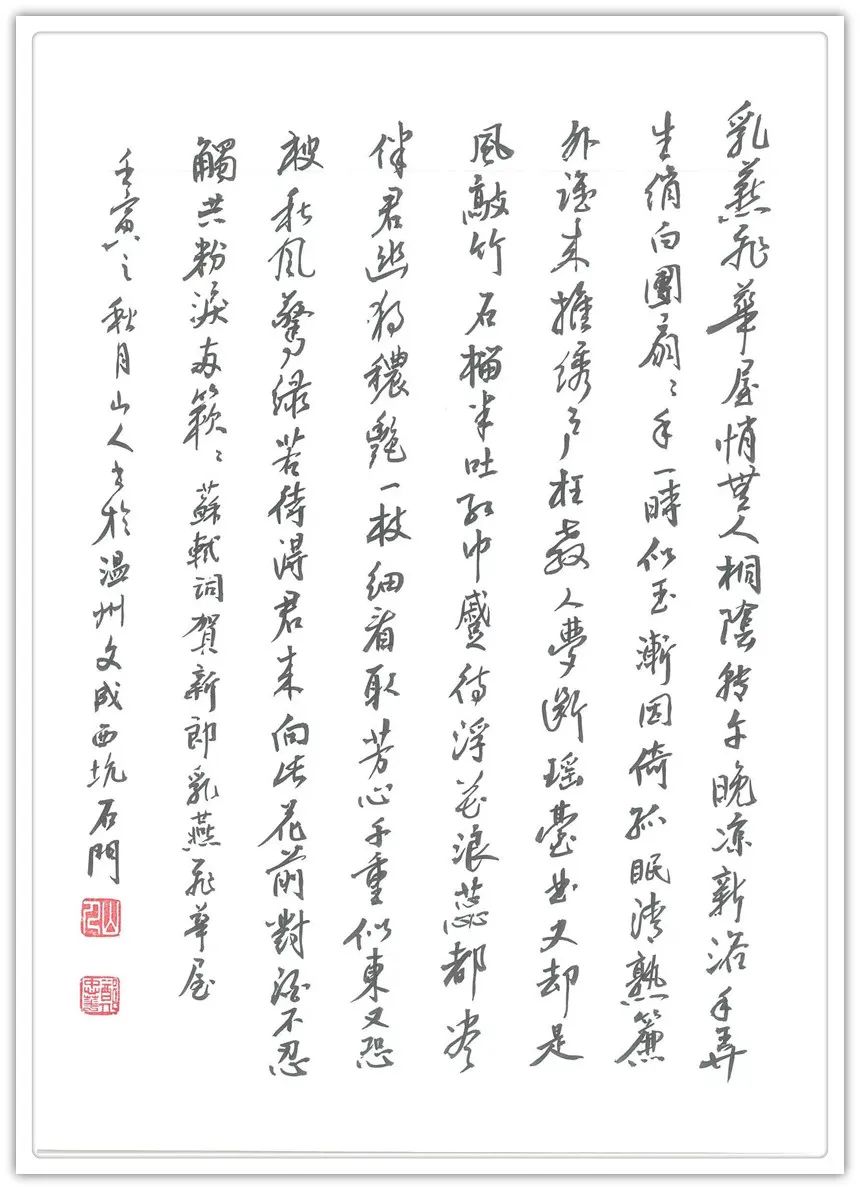 乳燕飛華屋悄無人桐陰轉午晚凉新浴手弄
生綃白團扇扇手一時似玉漸困倚孤眠清熟簾
外誰來推绣户枉教人夢斷瑶臺曲又却是
風敲竹石榴半吐红巾蹙待浮花浪蕊都盡
伴君幽獨穠艷一枝细看取芳心千重似束又恐
被秋风驚绿若待得君来向此花前對酒不忍
觸共粉淚兩簌簌蘇軾詞賀新郎乳燕飛華屋
壬寅之秋月山人书於温州文成西坑石門
山人